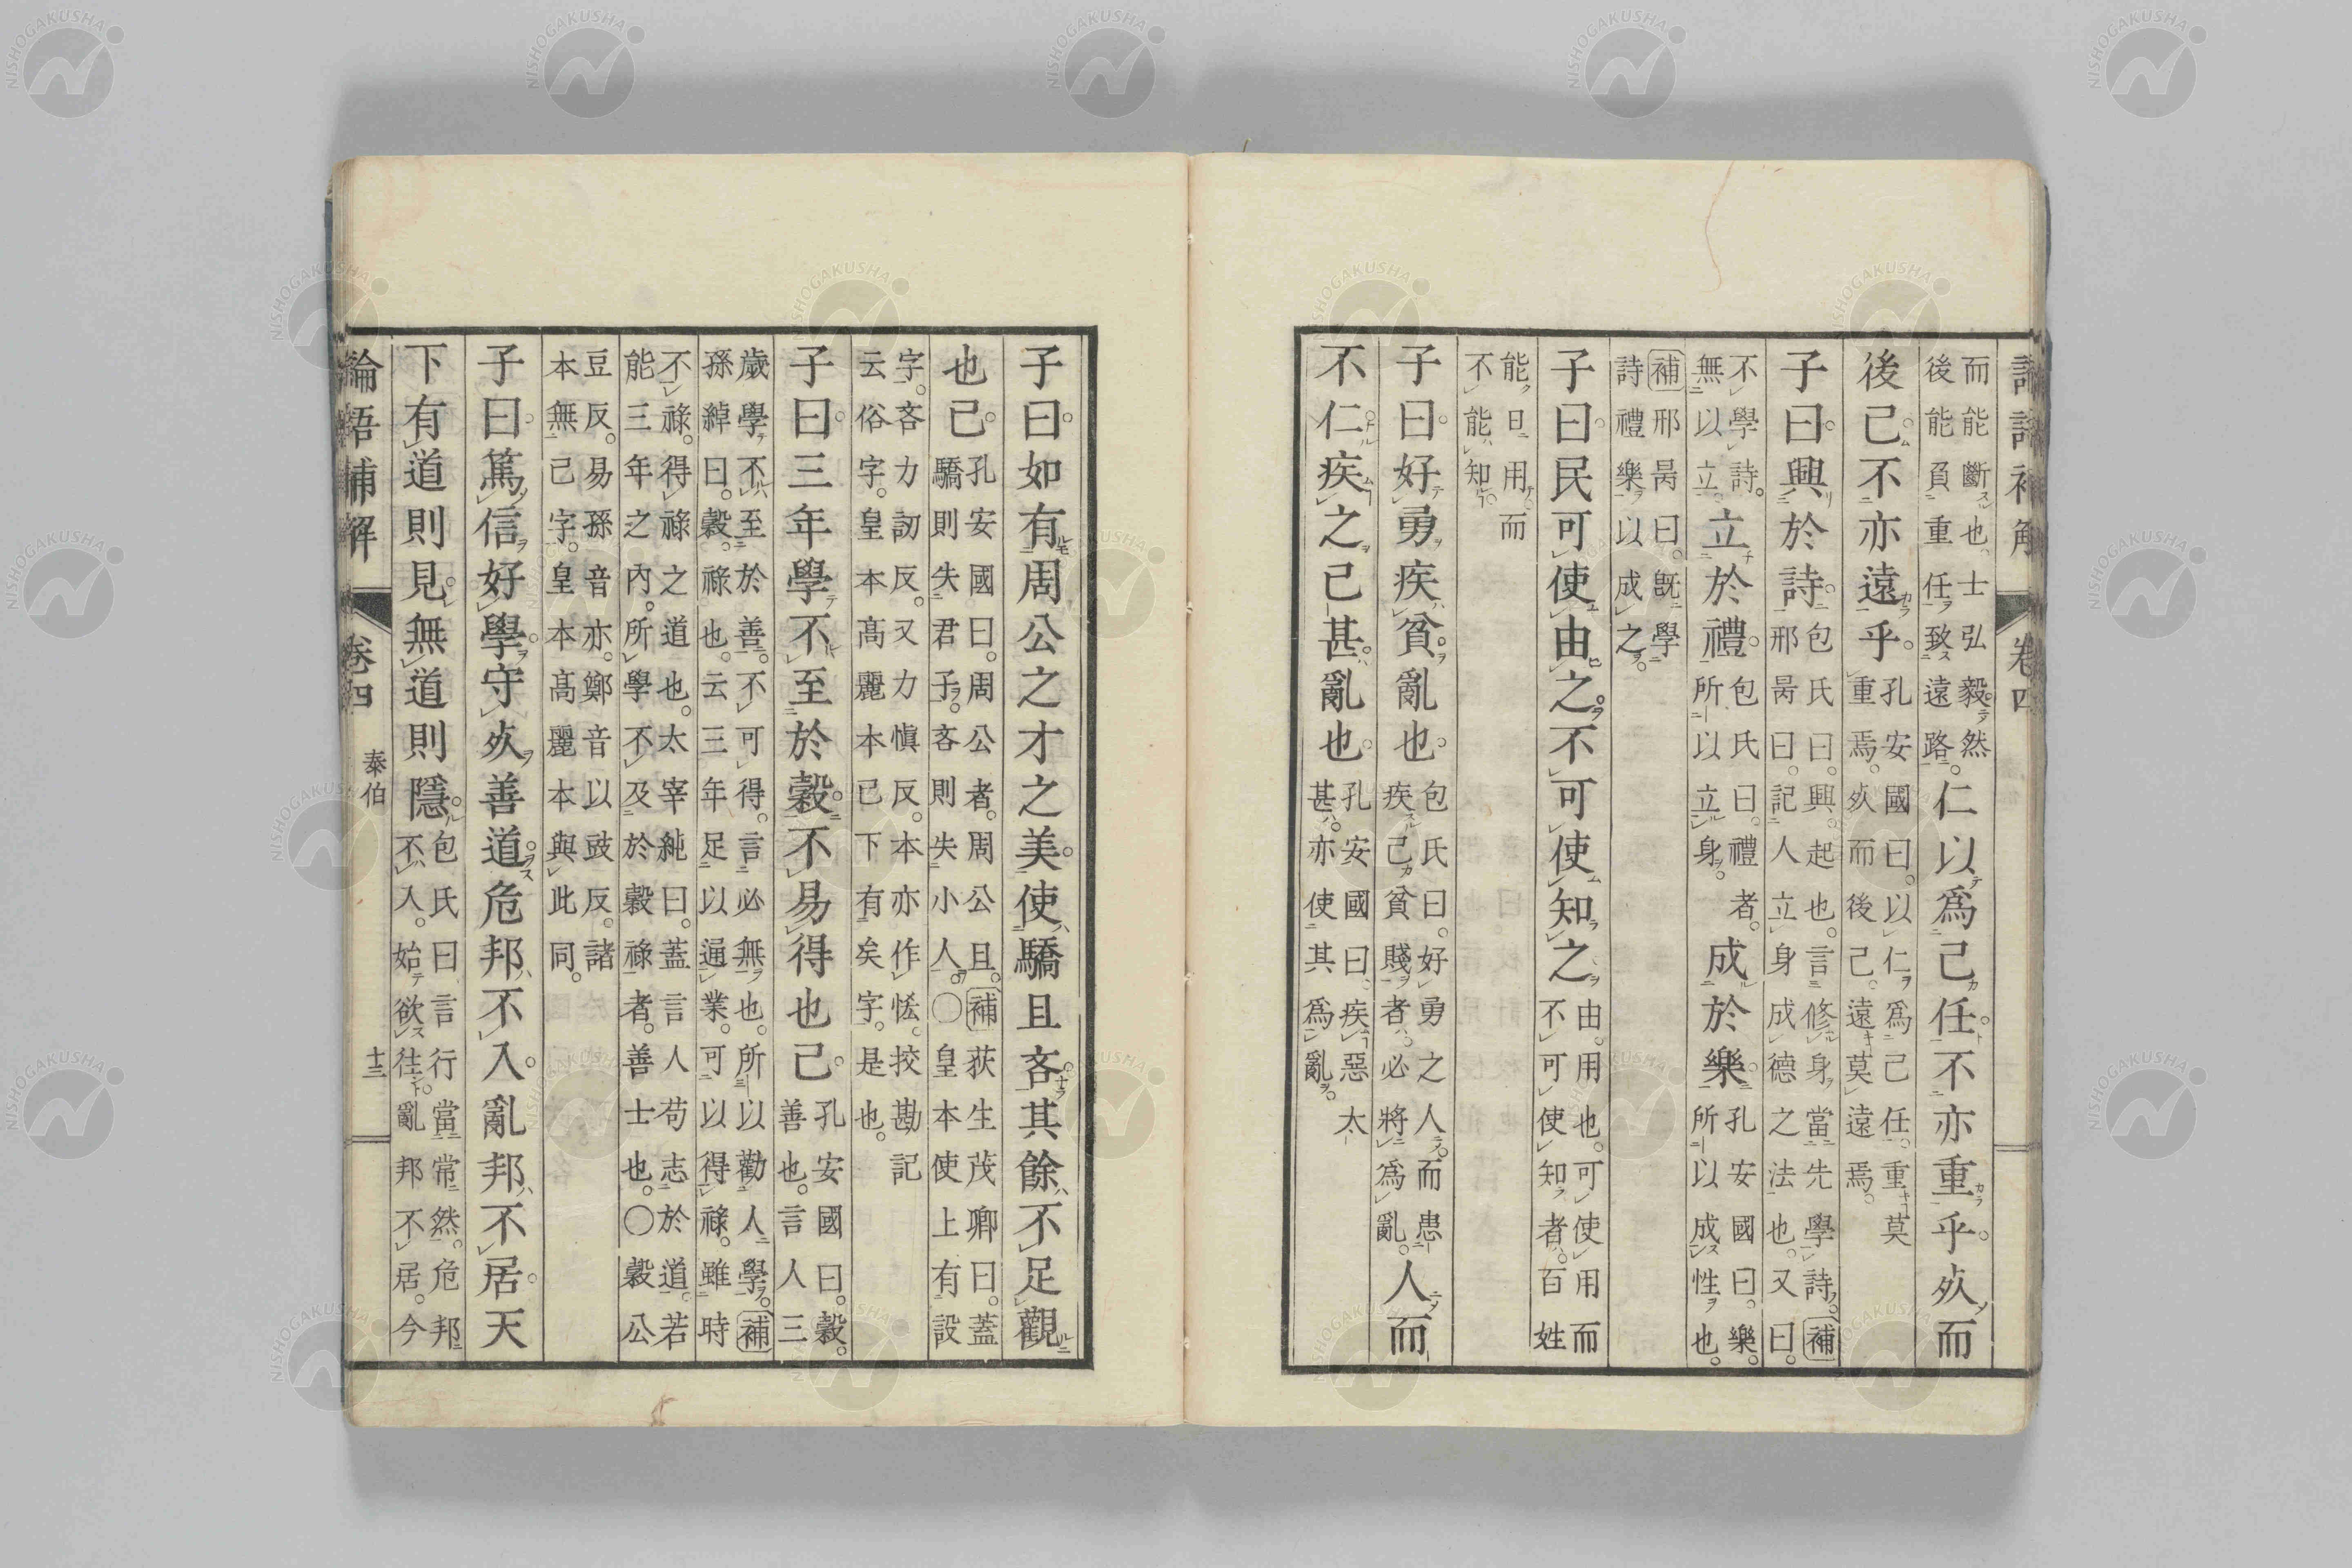 而能斷也。士弘毅然後能負重任致遠路。仁以爲己任不亦重乎。死而
後己。不亦遠乎。孔安國曰。以仁爲己任。重莫重焉。死而後己。遠莫遠焉。
子曰。興於詩。包氏曰。興起也。言修身當先學詩。補邢昺曰。記人立身成德之法也。又曰。
不學詩。無以立。立於禮。包氏曰。禮者。所以立身。成於樂。孔安國曰。樂。所以成性也。
補邢昺曰。既學詩禮樂以成之。
子曰。民可使由之。不可使知之。由。用也。可使用而不可使知者。百姓
能日用而不能知。
子曰。好勇疾貧。亂也。包氏曰。好勇之人。而患疾己貧賤者。必將爲亂。人而
不仁。疾之已甚。亂也。孔安國曰。疾惡太甚。亦使其爲亂。
子曰。如有周公之才之美。使驕且吝。其餘不足觀
也已。孔安國曰。周公者。周公且。補荻生茂卿曰。蓋驕則失君子。吝則失小人。〇皇本使上有設
字。吝力訒反。又力愼反。本亦作恡。挍勘記云俗字。皇本高麗本已下有矣字。是也。
子曰。三年學不至於穀。不易得也已。孔安國曰。穀。善也。言人三
歲學。不至於善。不可得。言必無也。所以勸人學。補孫綽曰。穀。祿也。云三年足以通業。可以得祿。雖時
不祿。得祿之道也。太宰純曰。蓋言人苟志於道。若能三年之內。所學不及於穀祿者。善士也。〇穀公
豆反。易孫音亦。鄭音以豉反。諸本無己字。皇本高麗本與此同。
子曰。篤信好學。守死善道。危邦不入。亂邦不居。天
下有道則見。無道則隱。包氏曰。言行當常然。危邦不入。始欲往。亂邦不居。今
論語補解 卷四 泰伯 十三